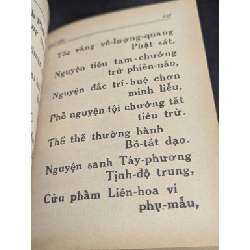 Tóc vàng vô-lượng-quang
Phật sát.
Nguyện tiêu tam-chướng
trừ phiền-não,
Nguyện đắc trí-huệ chơn
minh liễu,
Phổ nguyện tội chướng tất
tiêu trừ.
Thế thế thường hành
Bồ-tát đạo.
Nguyện sanh Tây-phương
Tịnh-độ trung,
Cửu phẩm Liên-hoa vi
phụ-mẫu,